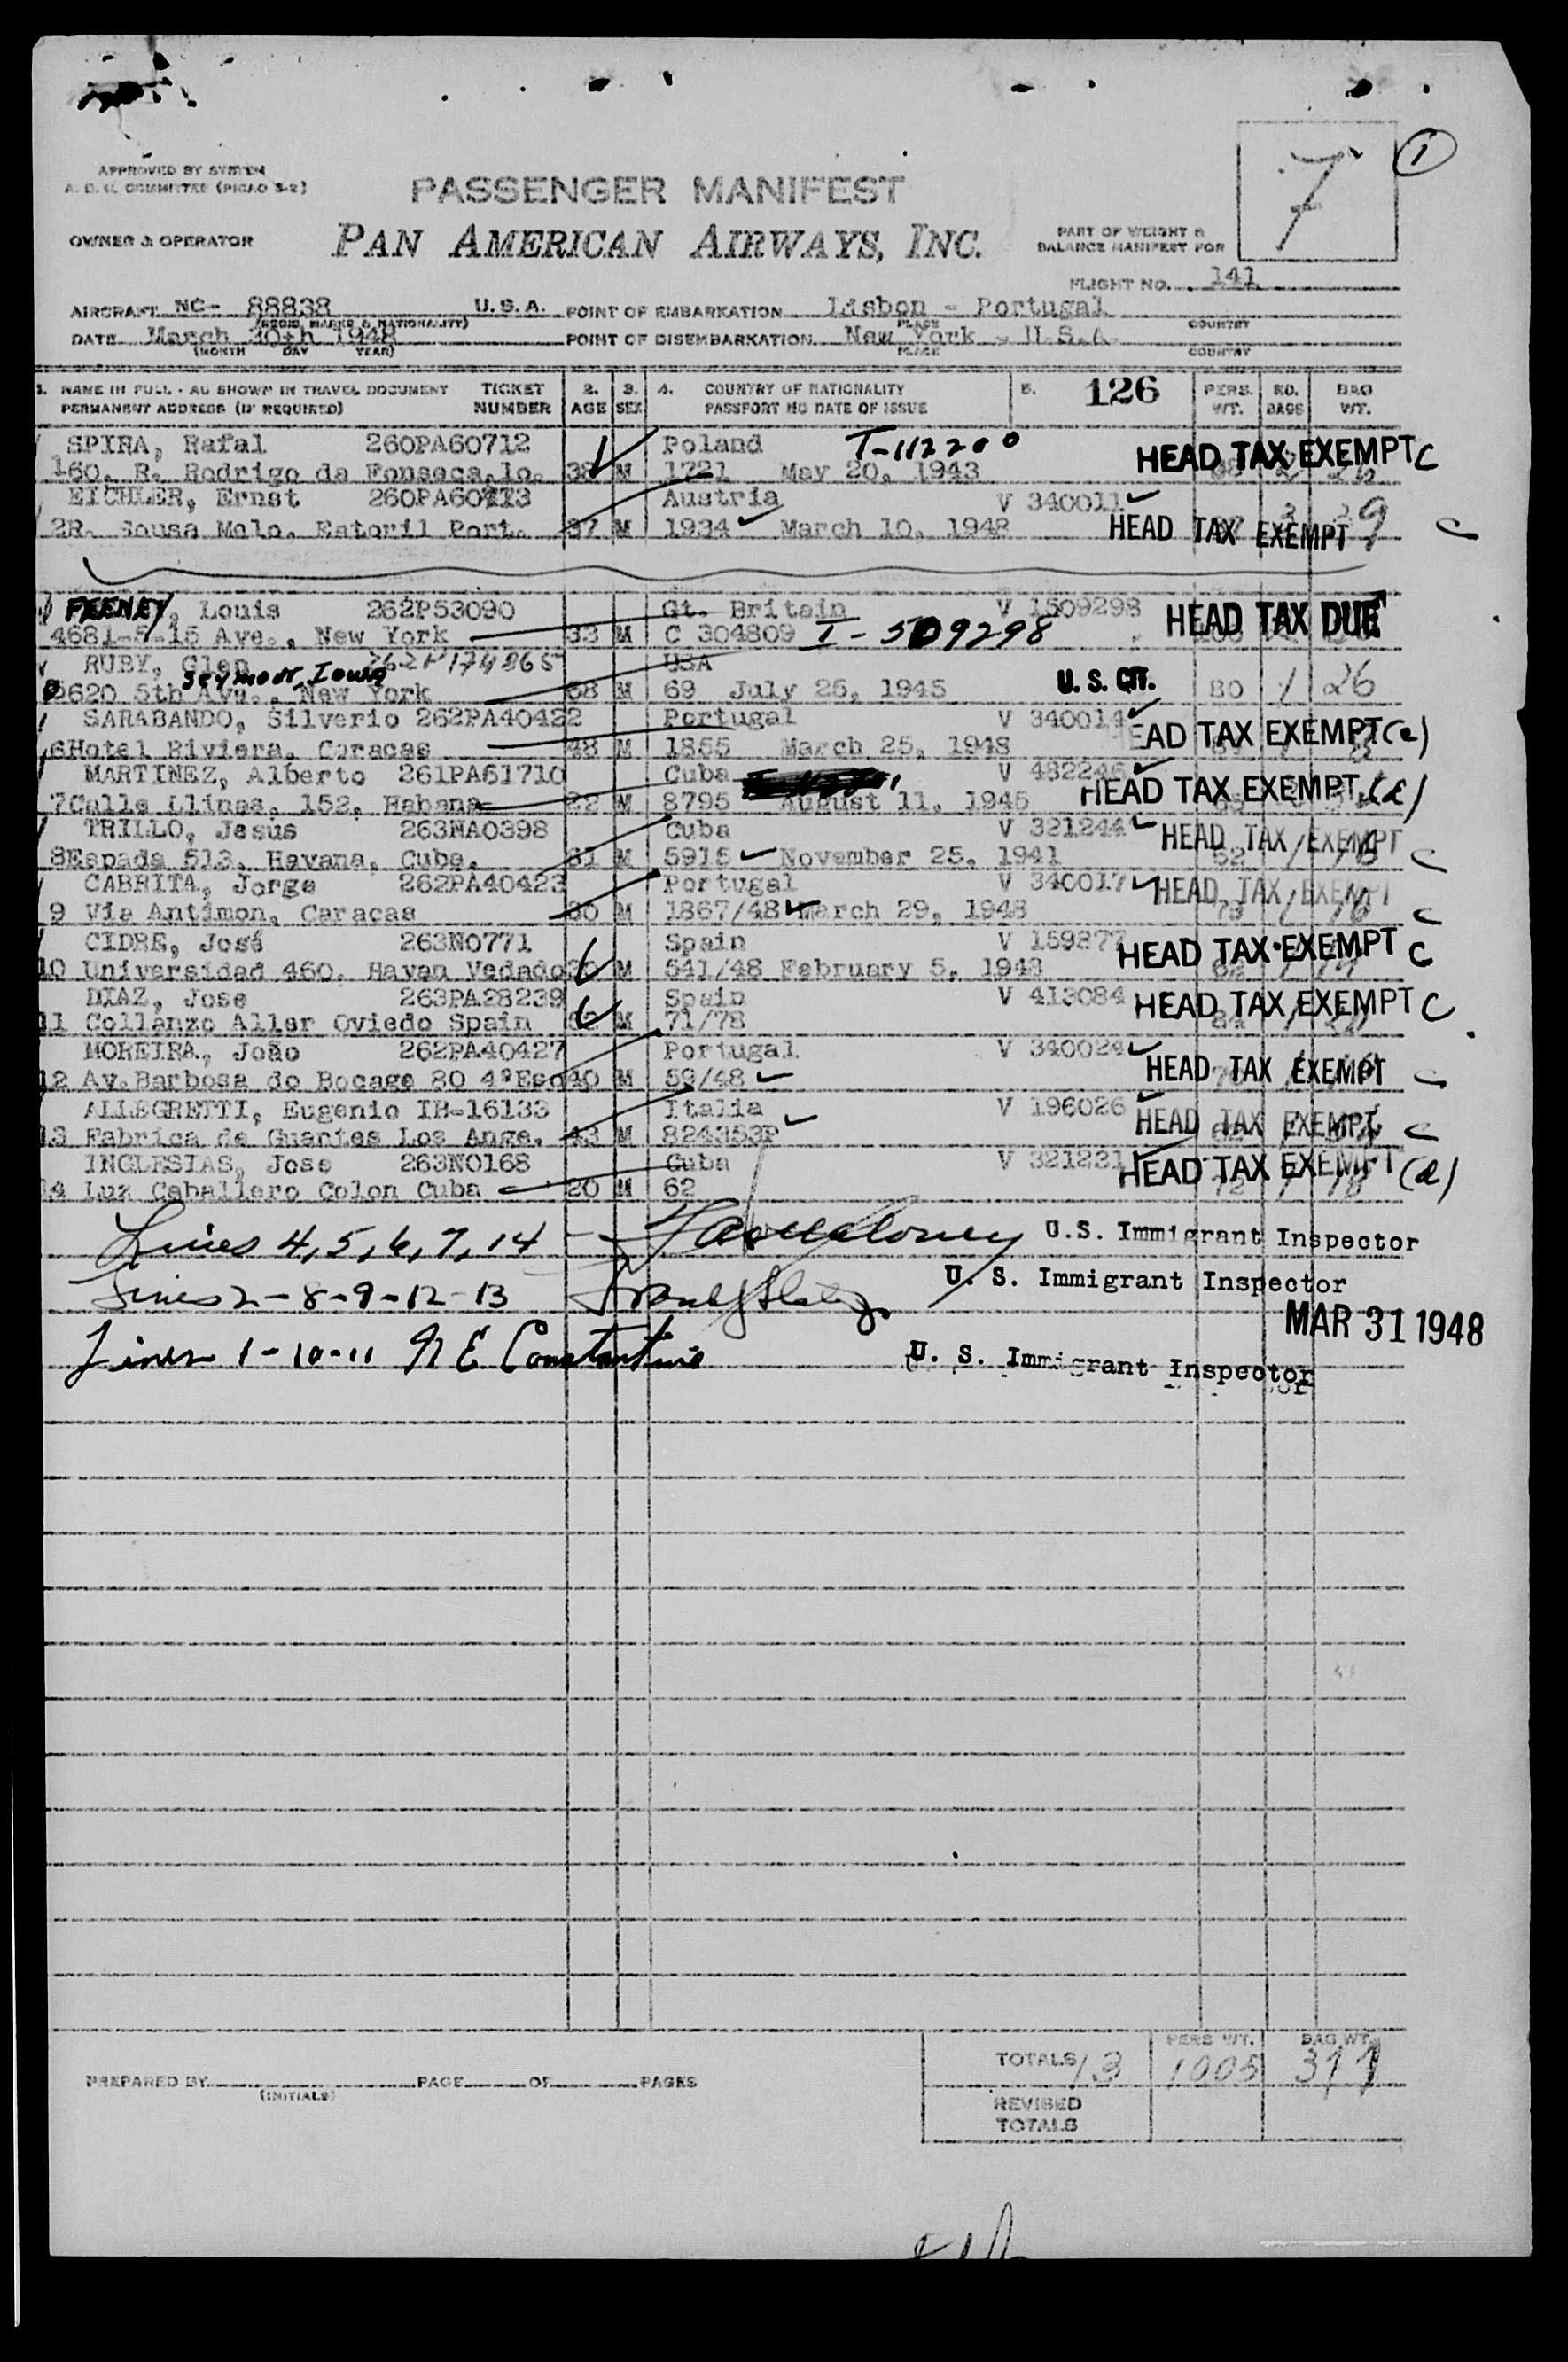 7 1
APPROVED BY SYSTEM
A. D. C. COMMITTEE (PICAO 3-2)
PASSENGER MANIFEST
OWNER & OPERATOR
PAN AMERICAN AIRWAYS, INC.
PART OF WEIGHT &
BALANCE MANIFEST FOR
FLIGHT NO. 141
AIRCRAFT NC- 88838 U.S.A. POINT OF EMBARKATION Lisbon - Portugal
(REGIS. MARKS & NATIONALITY) PLACE COUNTRY
DATE March 30th 1948 POINT OF DISEMBARKATION New York - U.S.A.
(MONTH DAY YEAR) PLACE COUNTRY
1. NAME IN FULL - AS SHOWN IN TRAVEL DOCUMENT TICKET 2. 3. 4. COUNTRY OF NATIONALITY 5. 126 PERS. NO. BAG
PERMANENT ADDRESS (IF REQUIRED) NUMBER AGE SEX PASSPORT NO DATE OF ISSUE WT. BAGS WT.
SPIRA, Rafal 260PA60712 Poland T-112200 HEAD TAX EXEMPT C
160. R. Rodrigo da Fonseca, lo. 38 M 1721 May 20, 1943
EICHLER, Ernst 260PA60713 Austria V 340011
2R. Sousa Melo. Estoril Port. 37 M 1934 March 10, 1948 HEAD TAX EXEMPT C
FEENEY, Louis 262P53090 Gt. Britain V 1509298 HEAD TAX DUE
4681-5-15 Ave., New York 33 M C 304809 I-509298
RUBY, Glen 262P174865 USA
Seymour, Iowa
5620 5th Ave., New York 58 M 69 July 25, 1945 U.S. CIT. 80 1 26
SARABANDO, Silverio 262PA40422 Portugal V 340014
6Hotel Riviera, Caracas 48 M 1855 March 25, 1948 EAD TAX EXEMPT (a)
MARTINEZ, Alberto 261PA61710 Cuba V 482246
7Calle Llinas, 152, Habana 22 M 8795 August 11, 1945 HEAD TAX EXEMPT (d)
TRILLO, Jesus 263NA0398 Cuba V 321244 HEAD TAX EXEMPT
8Espada 513, Havana, Cuba. 61 M 5915 November 25, 1941 C
CABRITA, Jorge 262PA40423 Portugal V 340017 HEAD TAX EXEMPT
9 Via Antimon, Caracas 30 M 1867/48 March 29, 1948 C
CIDRE, José 263N0771 Spain V 159877 HEAD TAX EXEMPT C
10 Universidad 460, Havan Vedado M 541/48 February 5, 1948
DIAZ, Jose 263PA28239 Spain V 413084 HEAD TAX EXEMPT C
11 Collanzo Aller Oviedo Spain M 71/78
MOREIRA, João 262PA40427 Portugal V 340024
12 Av.Barbosa do Bocage 80 4ºEsq 40 M 59/48 HEAD TAX EXEMPT C
ALLEGRETTI, Eugenio IB-16133 Italia V 196026
13 Fabrica de Guantes Los Ange. 43 M 824353P HEAD TAX EXEMPT C
INGLESIAS, Jose 263N0168 Cuba V 321231 HEAD TAX EXEMPT (d)
14 Luz Caballero Colon Cuba 20 M 62
Lines 4, 5, 6, 7, 14 - U.S. Immigrant Inspector
Lines 2-8-9-12-13 U. S. Immigrant Inspector
MAR 31 1948
Lines 1-10-11 N E Constantine U. S. Immigrant Inspector
PERS WT. BAG WT.
TOTALS 13 1005 311
PREPARED BY PAGE OF PAGES
(INITIALS)
REVISED
TOTALS